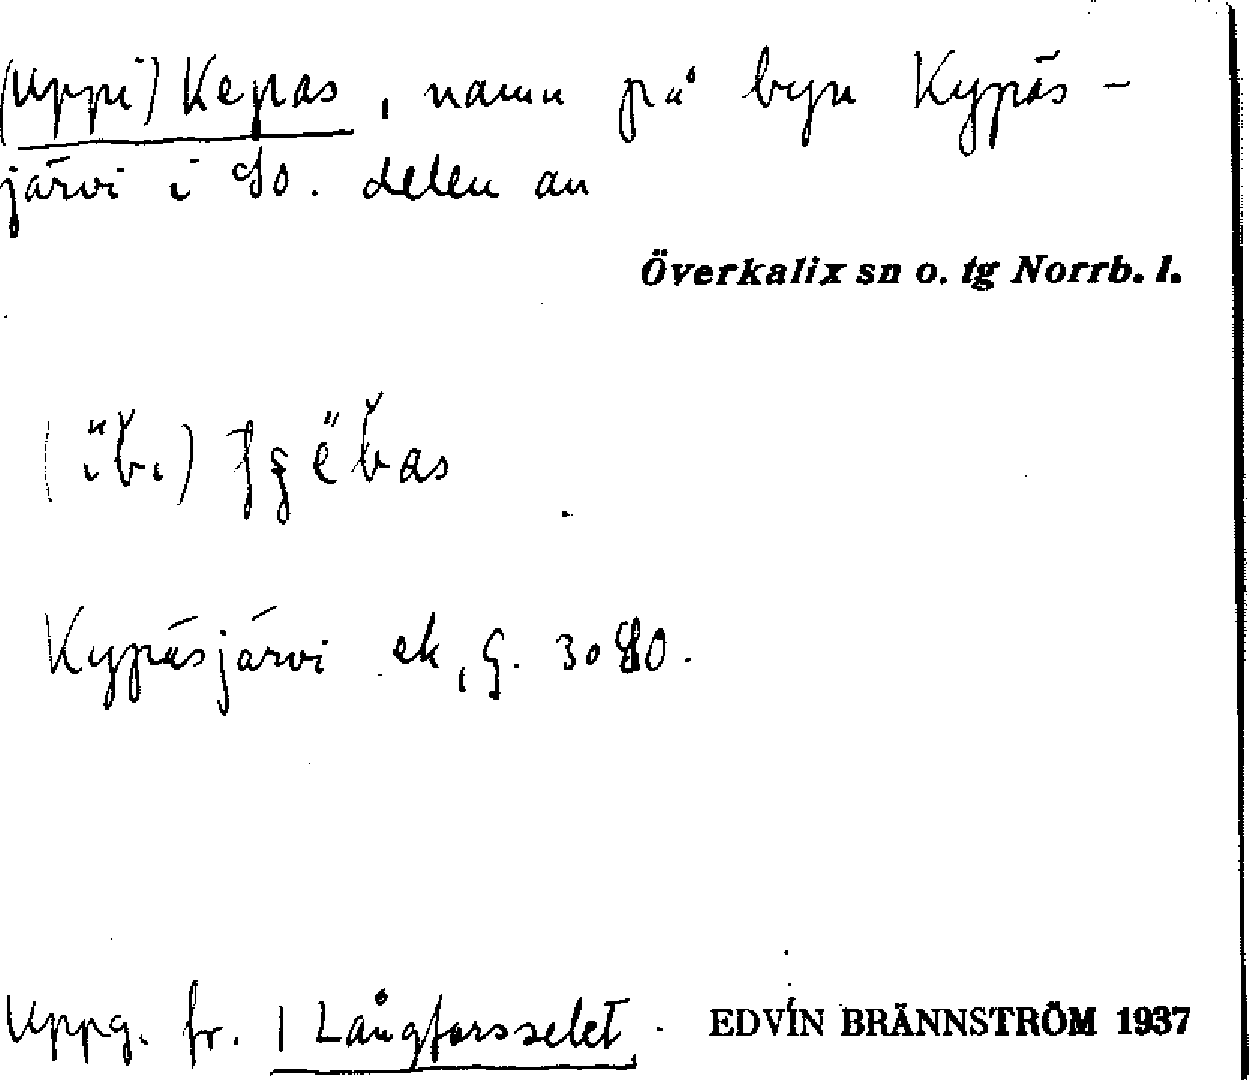 (Uppi) Kepas, namn på byn Kypäs-
järvi i SO. delen av
Överkalix sn o. tg Norrb. l.
Kypäsjärvi ek, G. 3080.
Uppg. fr. 1 Långforsselet. EDVIN BRÄNNSTRÖM 1937